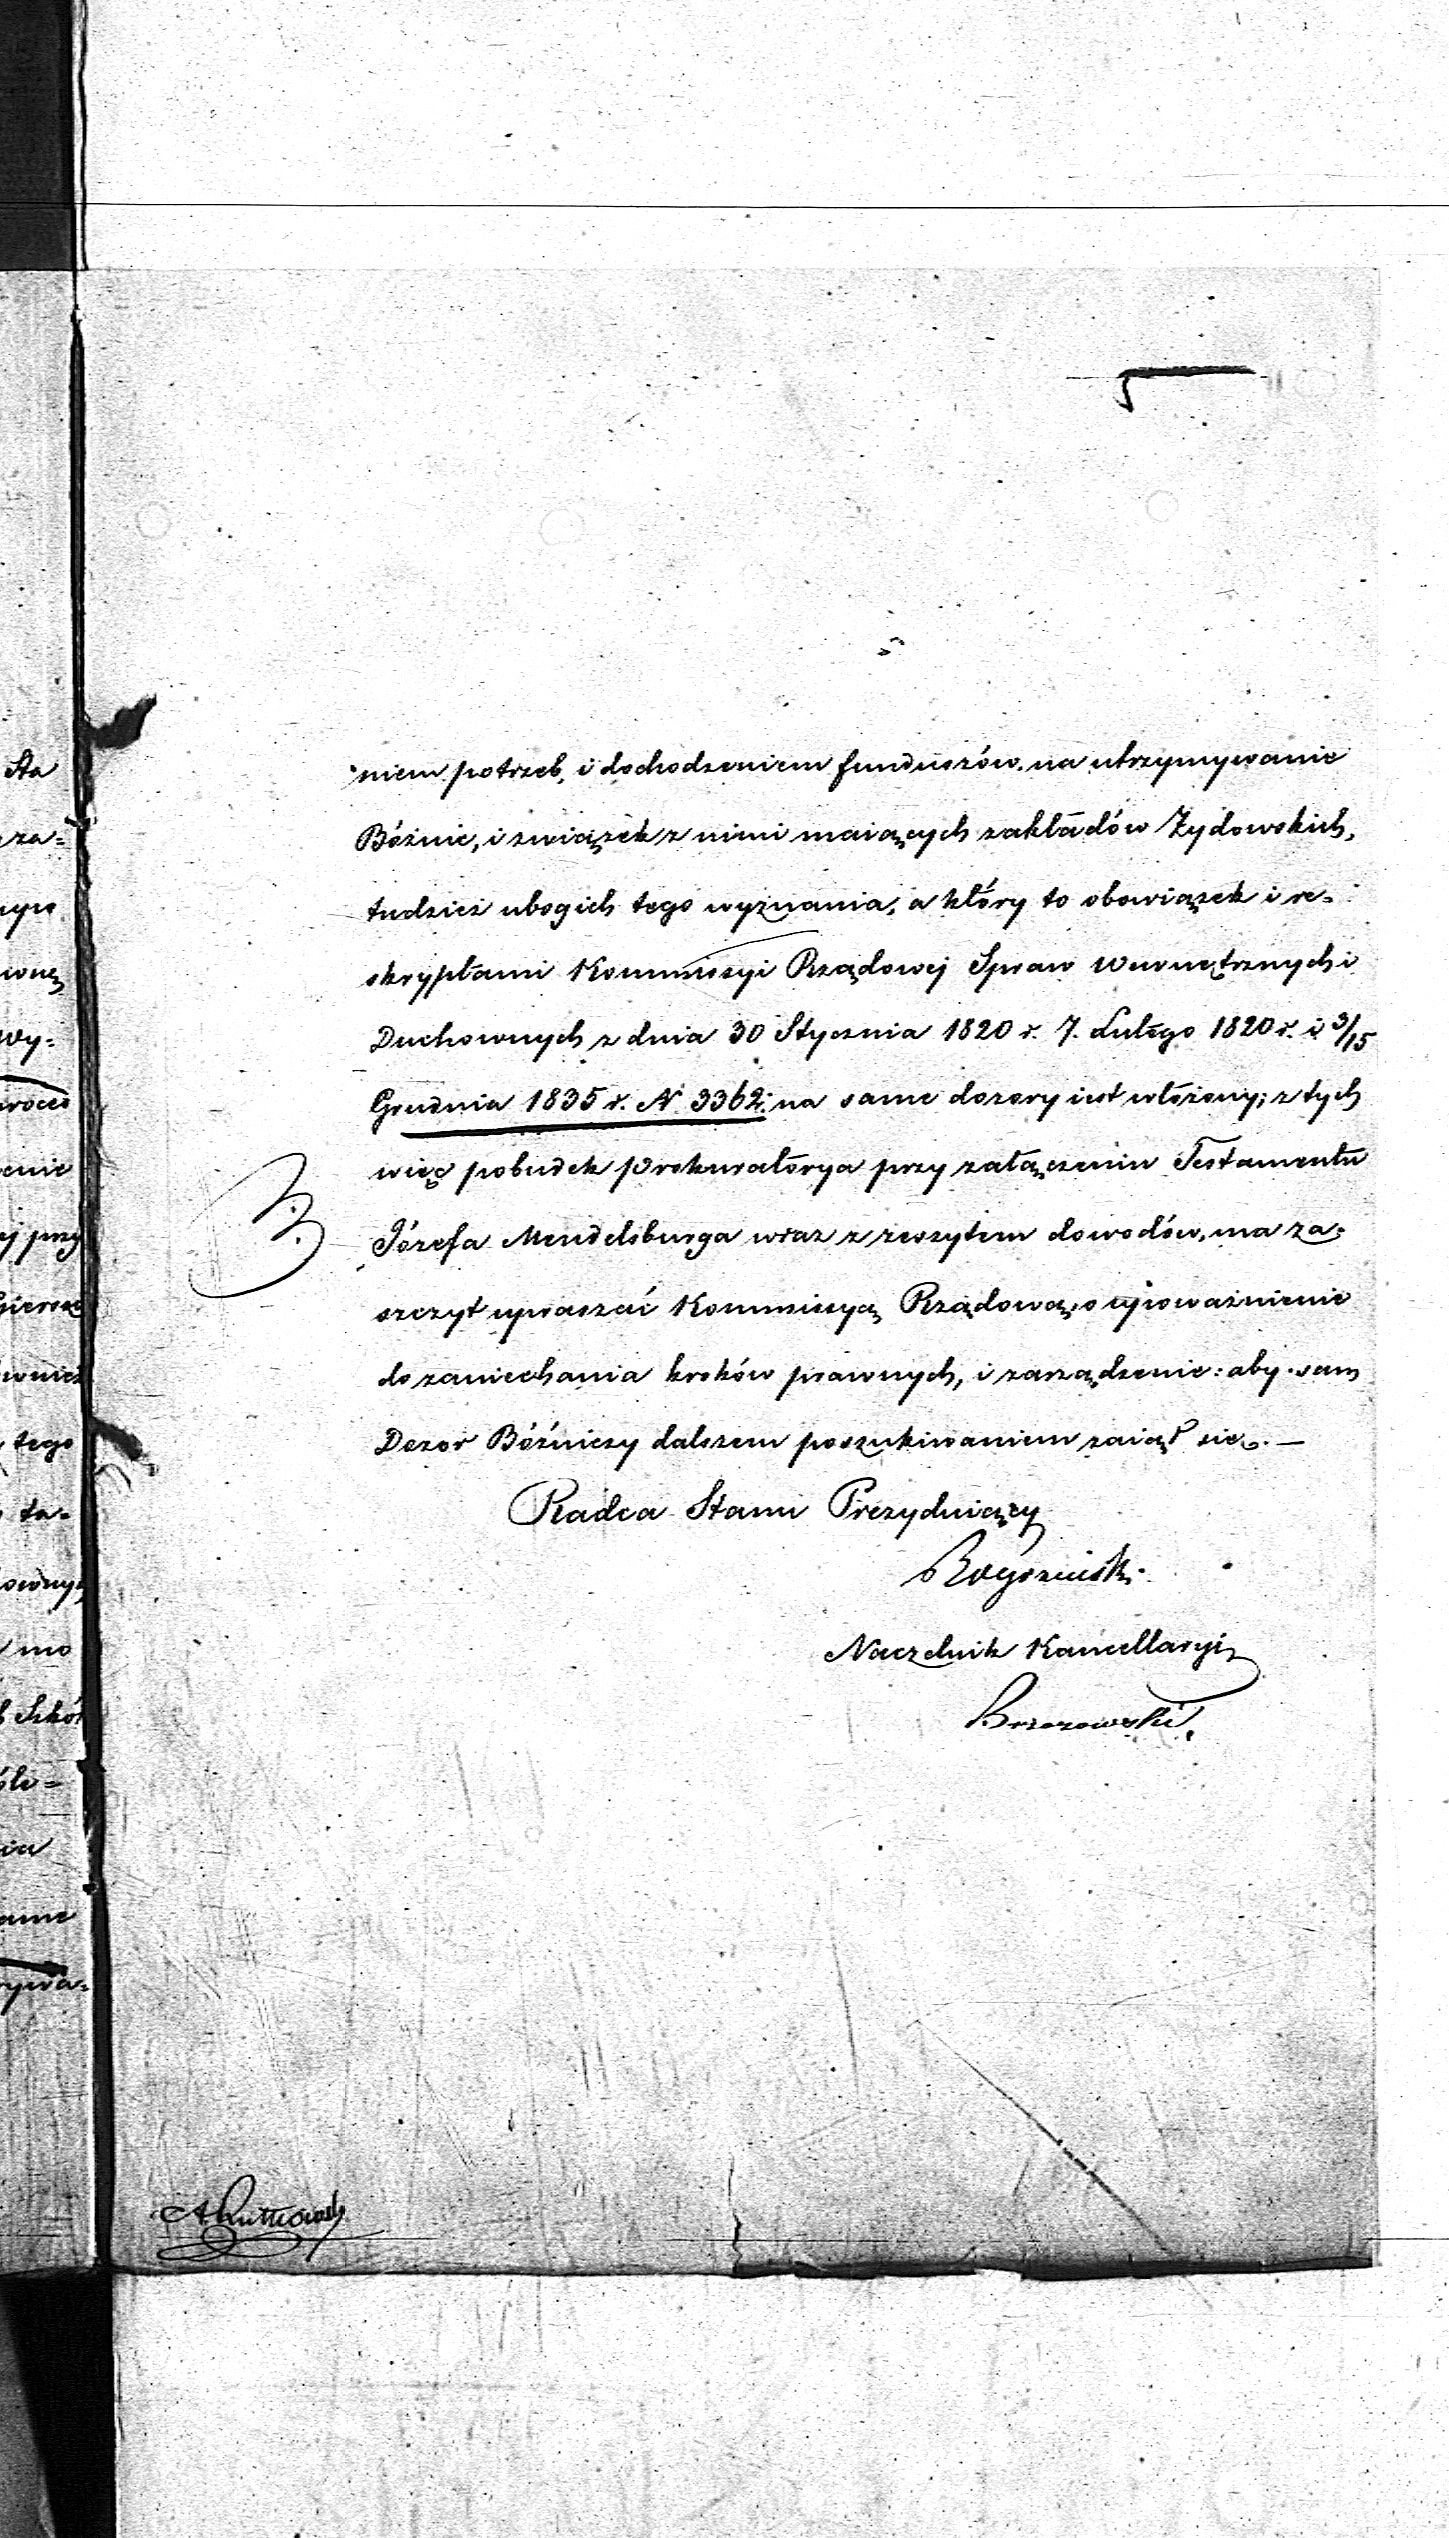 niem potrzeb, i dochodzeniem funduszów na utrzymywanie
Bóżnic, i związek z nimi maiących zakładów Żydowskich,
tudzież ubogich tego wyznania, a który to obowiązek i re-
skryptami Kommissyi Rządowej Spraw Wewnętrznych i
Duchownych z dnia 30 Stycznia 1820 r. 7. Lutego 1820 r. i 3/15
Grudnia 1835 r. N 3362. na same dozory iest włożony; z tych
więc pobudek Prokuratorya przy załączeniu Testamentu
Józefa Mendelsburga wraz z zeszytem dowodów, ma za-
szczyt upraszać Kommissyą Rządową, o upoważnienie
do zaniechania kroków prawnych, i zarządzenie: aby sam
Dozor Bóźniczy dalszem poszukiwaniem zaiął się. —
Radca Stanu Prezyduiący
Naczelnik Kancellaryi
Brzozowski
Sta
za-
wy-
tego
ta-
mo